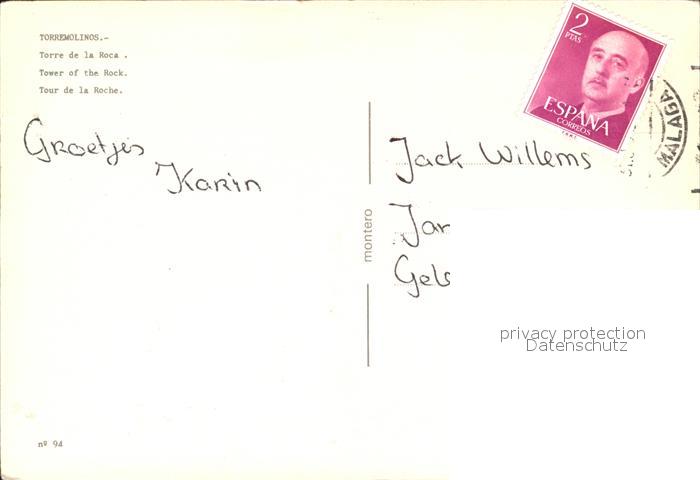 TORREMOLINOS.-
Torre de la Roca .
Tower of the Rock.
Tour de la Roche.
Groetjes
Karin
montero
2
PTAS
ESPAÑA
CORREOS
MALAGA
Jack Willems
Jar
Gels
privacy protection
Datenschutz
nº 94